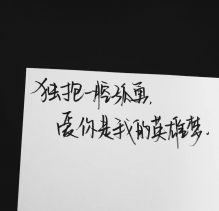 独抱一腔孤勇，
爱你是我的英雄梦。